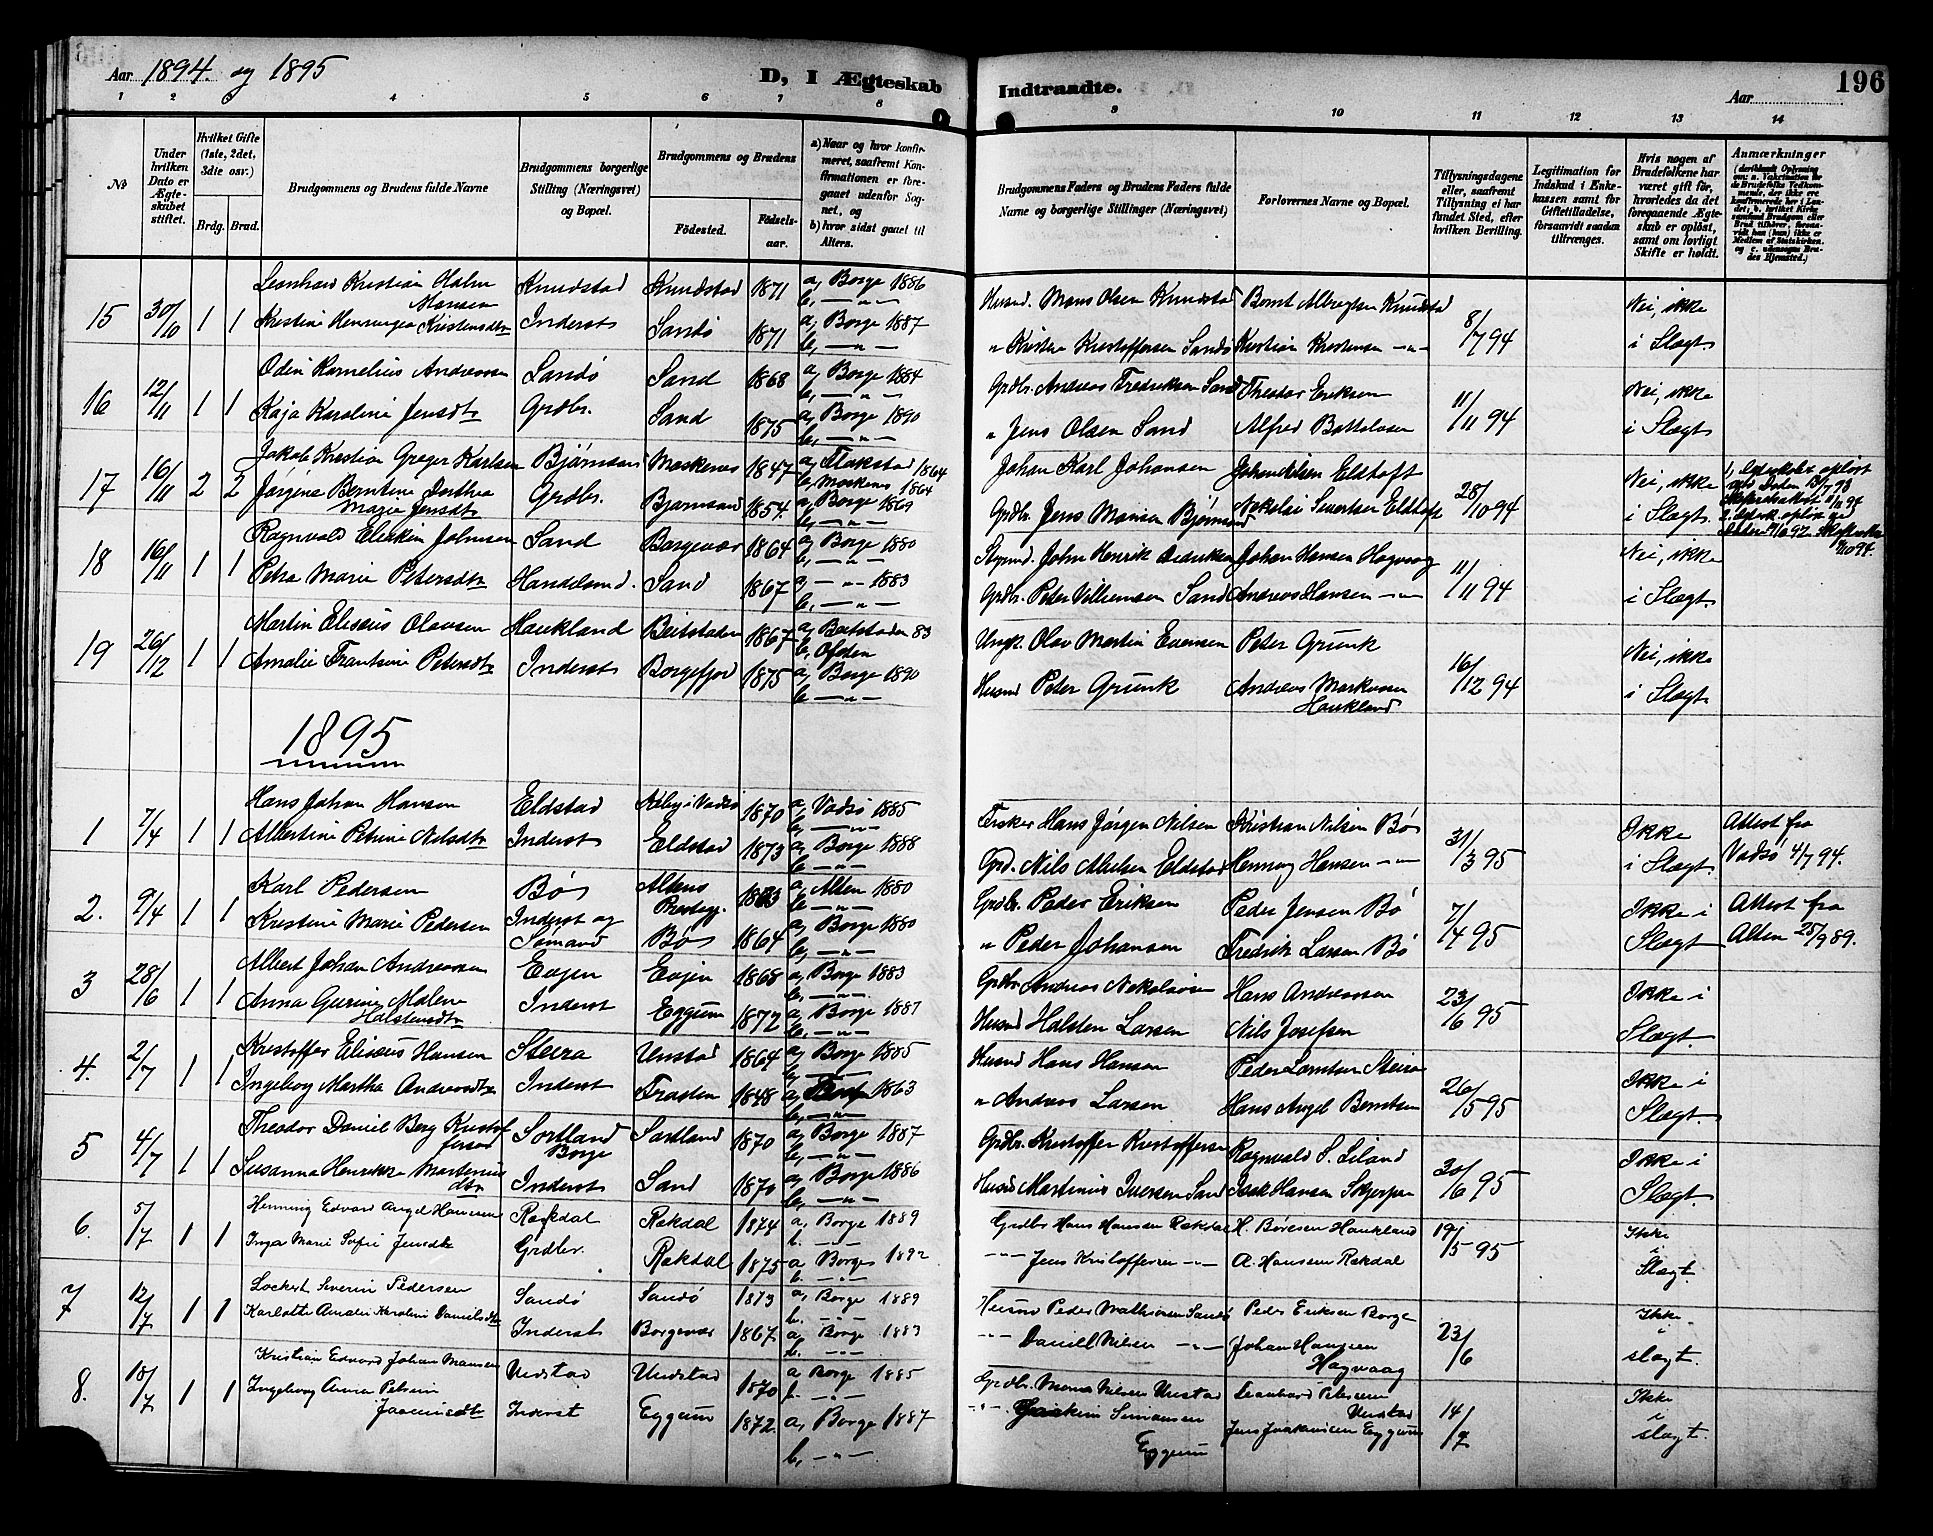 Aar 1894. og 1895
D, I Ægteskab Indtraadte.
Aar
196
1 2 3 4 5 6 7 8 9 10 11 12 13 14
No
Under hvilken Dato er Ægteskabet stiftet.
Hvilket Gifte (1ste, 2det, 3die osv.)
Brdg. Brud.
Brudgommens og Brudens fulde Navne
Brudgommens borgerlige Stilling (Næringsvei) og Bopæl.
Brudgommens og Brudens
Fødested.
Fødselsaar.
a) Naar og hvor konfirmeret, saafremt Konfirmationen er foregaaet udenfor Sognet, og
b) hvor sidst gaaet til Alters.
Brudgommens Faders og Brudens Faders fulde Navne og borgerlige Stillinger (Næringsvei)
Forlovernes Navne og Bopæl.
Tillysningsdagene eller, saafremt Tillysning ei har fundet Sted, efter hvilken Bevilling.
Legitimation for Indskud i Enkekassen samt for Giftetilladelse, forsaavidt saadan tiltrænges.
Hvis nogen af Brudefolkene har været gift før, hvorledes da det foregaaende Ægteskab er opløst, samt om lovligt Skifte er holdt.
Anmærkninger
15 30/10 1 1 Leonhard Kristian Holm Hansen Knudstad Knudstad 1871 a, Borge 1886 Husmd. Mons Olsen Knudstad Bernt Albregtsen Knudstad 8/7 94 Nei, ikke
Kristine Henningea Kristensdtr Inderst Sandø 1871 a, Borge 1887 b, — " — " Kristen Kristoffersen Sandø Kristian Kristensen — " — i Slægt.
16 12/11 1 1 Odin Kornelius Andreassen Sandø Sand 1868 a, Borge 1884 Grdbr. Andreas Fredriksen Sand Theodor Eriksen 11/11 94 Nei, ikke
Kaja Karoline Jensdtr Grdbr. Sand 1875 a, Borge 1890 b, — " — " Jens Olsen Sand Alfred i Slægt
17 16/11 2 2 Jakob Kristian Greger Karlsen Bjørnsand Moskenes 1847 a, Flakstad 1864 b, Moskenes 1864 Johan Karl Johansen Eldtoft 28/10 94 Nei, ikke
Jørgine Berntine Dorthea Marie Jensdtr Grdbr. Bjørnsand 1854. a, Borge 1869 b, — " — Grdbr. Jens Hansen Bjørnsand Nikolai Sivertsen Eldtoft i Slægt.
18 16/11 1 1 Ragnvald Johnsen Sand Borgevær 1864 a, Borge 1880 b, — " — John Henrik Didriksen Johan Hansen Hagvaag 11/11 94 Nei, ikke
Petra Marie Petersdtr Handelsmd. Sand 1867 a, — " — 1883 b, — " — Grdbr. Peter Villumsen Sand Andreas Hansen — " — i Slægt.
19 26/12 1 1 Martin Elisæus Olausen Haukland Beitstaden 1867 a, Beitstaden 83 b, Ofoten Ungk. Olav Martin Evensen Peter Grunk 16/12 94 Nei, ikke
Amalie Frantsine Petersdtr Inderst Borgefjor 1875 a, Borge 1890 b, — " — Husmd Peter Grunk Andreas Markussen Haukland i Slægt.
1895
1 7/4 1 1 Hans Johan Hansen Eldstad Vadsø 1870 a, Vadsø 1885 b, — " — Fisker Hans Jørgen Nilsen Kristian Nilsen Bø 31/3 95 Ikke Attest fra
Albertine Petrine Nilsdtr Inderst Eldstad 1873 a, Borge 1888 b, — " — Grd. Nils Eldstad Henning Hansen — " — i Slægt. Vadsø 4/7 94.
2. 9/4 1 1 Karl Pedersen Bø Altens Prestegj. a, Alten 1880 b, — " — Grdbr. Peder Eriksen Peder Jensen Bø 7/4 95 Ikke i Attest fra
Kristine Marie Pedersen Inderst og Sømand Bø 1864 a, Borge 1880 b, — " — " Peder Johansen Fredrik Larsen Bø Slægt Alten 25/9 89.
3 28/6 1 1 Albert Johan Andreassen Evjen Evjen 1868 a, Borge 1883 b, — " — Grdbr Andreas Nikolaisen Hans Andreassen 23/6 95 Ikke i
Anna Gurine Malene Halstensdtr Inderst Eggum 1872 a, Borge 1887 b, — " — Husmd Halsten Larsen Nils Josefsen Slægt
4. 2/7 1 1 Kristoffer Elisæus Hansen Steira Unstad 1864 a, Borge 1885 Husmd Hans Hansen Peder Lorntsen Steira 26/5 95 Ikke i
Ingeborg Martha Andreasdtr Inderst Trasten 1848 a, 1863 b, — " — " Andreas Larsen Hans Angel Berntsen Slægt.
5 4/7 1 1 Theodor Daniel Berg Kristoffersen Sortland Borge Sortland 1870 a, Borge 1887 b, — " — Grdbr. Kristoffer Kristoffersen Ragnvald S. Liland 30/6 95 Ikke i
Susanna Henrikke Martinusdtr Inderst Sand 1870 a, Borge 1886 b, — " — Husmd Martinus Iversen Sand Isak Hansen Skjerpen Slægt.
6. 5/7 1 1 Henning Edvard Angel Hansen Rækdal Rækdal 1874 a, Borge 1889 b. — " — Grdbr Hans Hansen Rækdal H. Børesen Haukland 19/5 95 Ikke
Inga Marie Sofie Jensdtr Grdbr. Rækdal 1875 a Borge 1892 b. — " — — " — Jens Kristoffersen — " — A. Hansen Rækdal i Slægt.
7 12/7 1 1 Lockert Severin Pedersen Sandø Sandø 1873 a, Borge 1889 b. — " — Husmd Peder Mathisen Sandø Peder Eriksen Borge 23/6 Ikke
Karlotte Amalie Karoline Danielsdtr Inderst Borgevær 1867 a, Borge 1883 b, — " — — " — Daniel Nilsen — " — Johan Hansen Hagvaag i slægt.
8. 18/7 1 1 Kristian Edvard Johan Monsen Undstad Undstad 1870 a Borge 1885 b. — " — Grdbr. Mons Nilsen Unstad Leonhard Petersen Unstad 14/7 Ikke
Ingeborg Anna Petrine Joakimsdtr Inderst Eggum 1872. a, Borge 1887 b, — " — — " — Joakim Simonsen Eggum Jens Joakimsen Eggum i slægt.